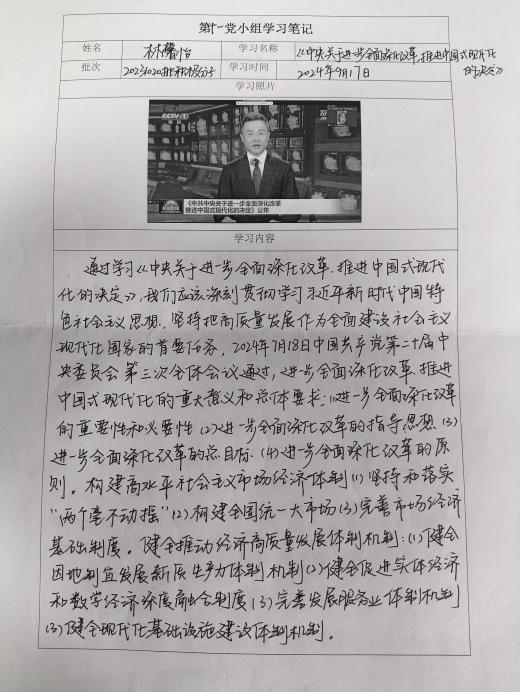 第十一党小组学习笔记
姓名 林馨怡 学习名称 《中央关于进一步全面深化改革、推进中国式现代化
的决定》
批次 20231020批积极分子 学习时间 2024年9月17日
学习照片
CCTV
《中共中央关于进一步全面深化改革
推进中国式现代化的决定》公布
学习内容
通过学习《中央关于进一步全面深化改革、推进中国式现代
化的决定》,我们应该深刻贯彻学习习近平新时代中国特
色社会主义思想,坚持把高质量发展作为全面建设社会主义
现代化国家的首要任务,2024年7月18日中国共产党第二十届中
央委员会第三次全体会议通过,进一步全面深化改革、推进
中国式现代化的重大意义和总体要求:(1)进一步全面深化改革
的重要性和必要性(2)进一步全面深化改革的指导思想(3)
进一步全面深化改革的总目标(4)进一步全面深化改革的原
则。构建高水平社会主义市场经济体制(1)坚持和落实
“两个毫不动摇”(2)构建全国统一大市场(3)完善市场经济
基础制度。健全推动经济高质量发展体制机制:(1)健全
因地制宜发展新质生产力体制机制(2)健全促进实体经济
和数字经济深度融合制度(3)完善发展服务业体制机制
(3)健全现代化基础设施建设体制机制。